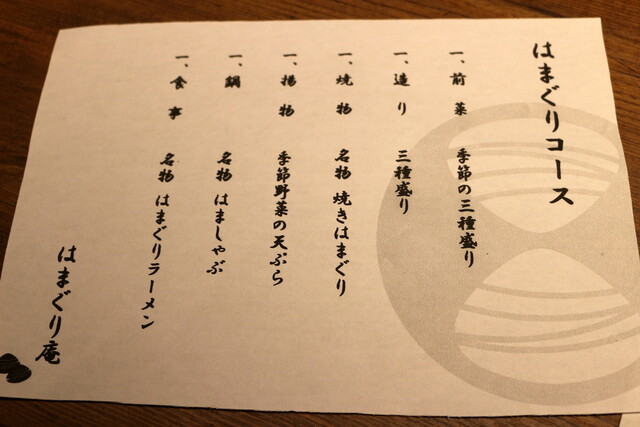 はまぐりコース
一、前菜 季節の三種盛り
一、造り 三種盛り
一、焼物 名物 焼きはまぐり
一、揚物 季節野菜の天ぷら
一、鍋 名物 はましゃぶ
一、食事 名物 はまぐりラーメン
はまぐり庵